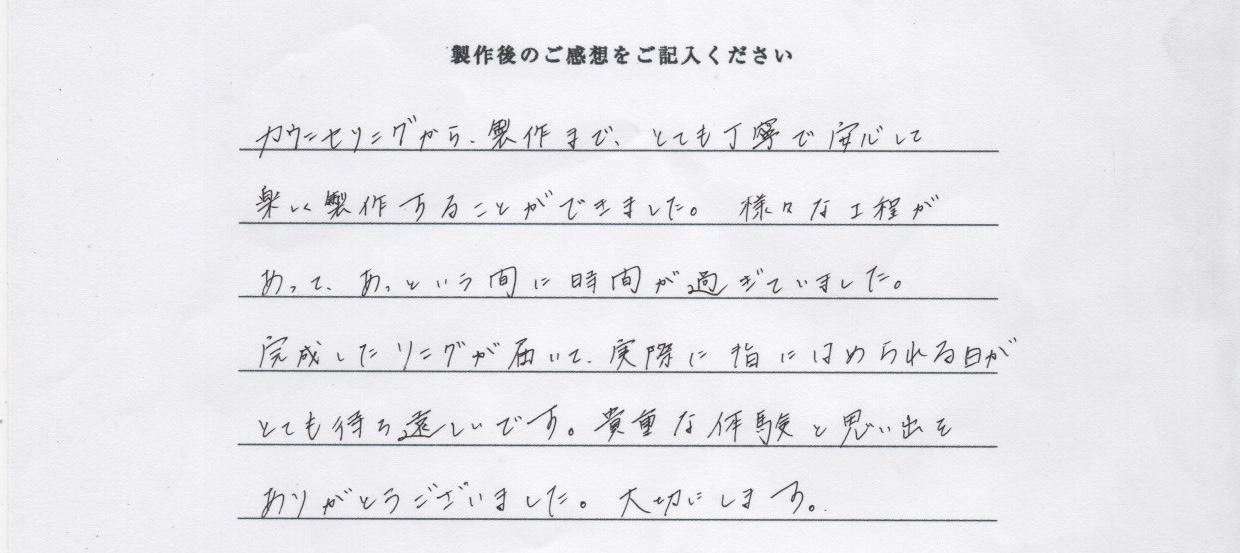 製作後のご感想をご記入ください
カウンセリングから、製作まで、とても丁寧で安心して
楽しく製作することができました。 様々な工程が
あって、あっという間に時間が過ぎていました。
完成したリングが届いて、実際に指にはめられる日が
とても待ち遠しいです。貴重な体験と思い出を
ありがとうございました。大切にします。